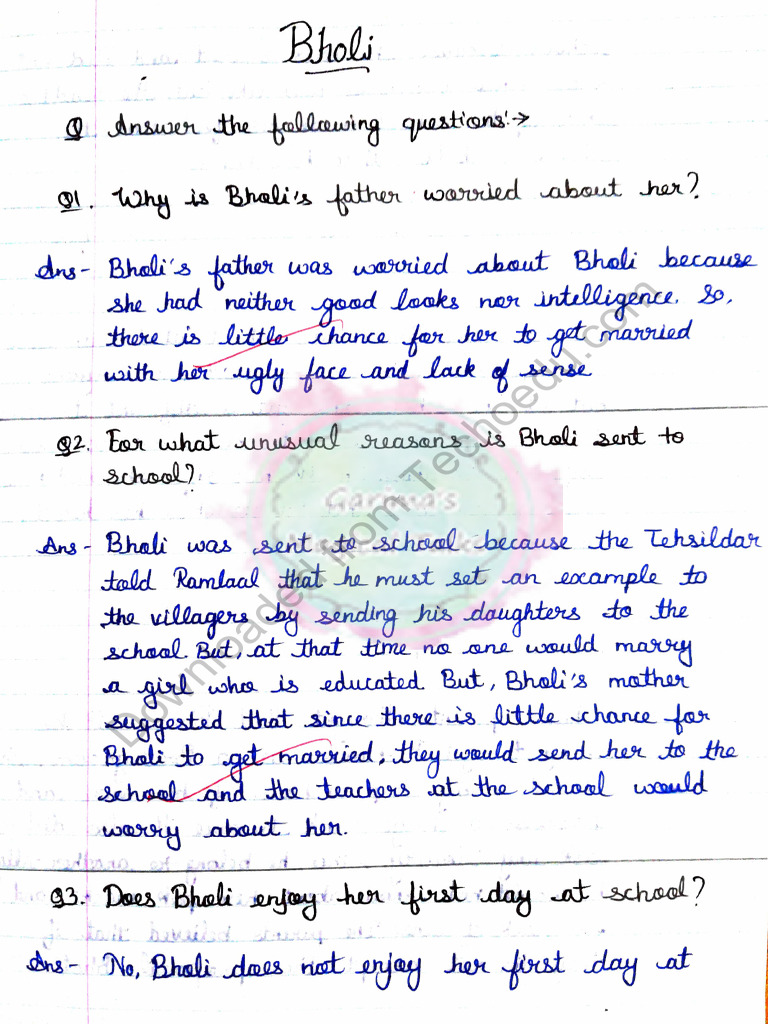 Bholi
Q Answer the following questions:→
Q1. Why is Bholi's father worried about her?
Ans- Bholi's father was worried about Bholi because
she had neither good looks nor intelligence. So,
there is little chance for her to get married
with her ugly face and lack of sense
Q2. For what unusual reasons is Bholi sent to
school?
Ans- Bholi was sent to school because the Tehsildar
told Ramlaal that he must set an example to
the villagers by sending his daughters to the
school. But, at that time no one would marry
a girl who is educated. But, Bholi's mother
suggested that since there is little chance for
Bholi to get married, they would send her to the
school and the teachers at the school would
worry about her.
Q3. Does Bholi enjoy her first day at school?
Ans- No, Bholi does not enjoy her first day at
Downloaded from Techoedu.com
Garima's